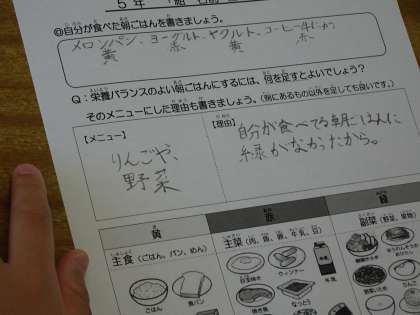 5年
◎自分が食べた朝ごはんを書きましょう。
メロンパン、ヨーグルト、ヤクルト、コーヒー牛にゅう
黄 赤 黄 赤
Q：栄養バランスのよい朝ごはんにするには、何を足すとよいでしょう？
そのメニューにした理由も書きましょう。（朝にあるもの以外を足しても良いです。）
【メニュー】
りんごや、
野菜
【理由】
自分が食べてる朝ごはんに
緑がなかったから。
黄 赤 緑
主食（ごはん、パン、めん）
主菜（肉、魚、卵、牛乳、豆）
副菜（野菜、果物）
ごはん
食パン
目玉焼き
ウィンナー
牛乳
焼き魚
なっとう
りんご